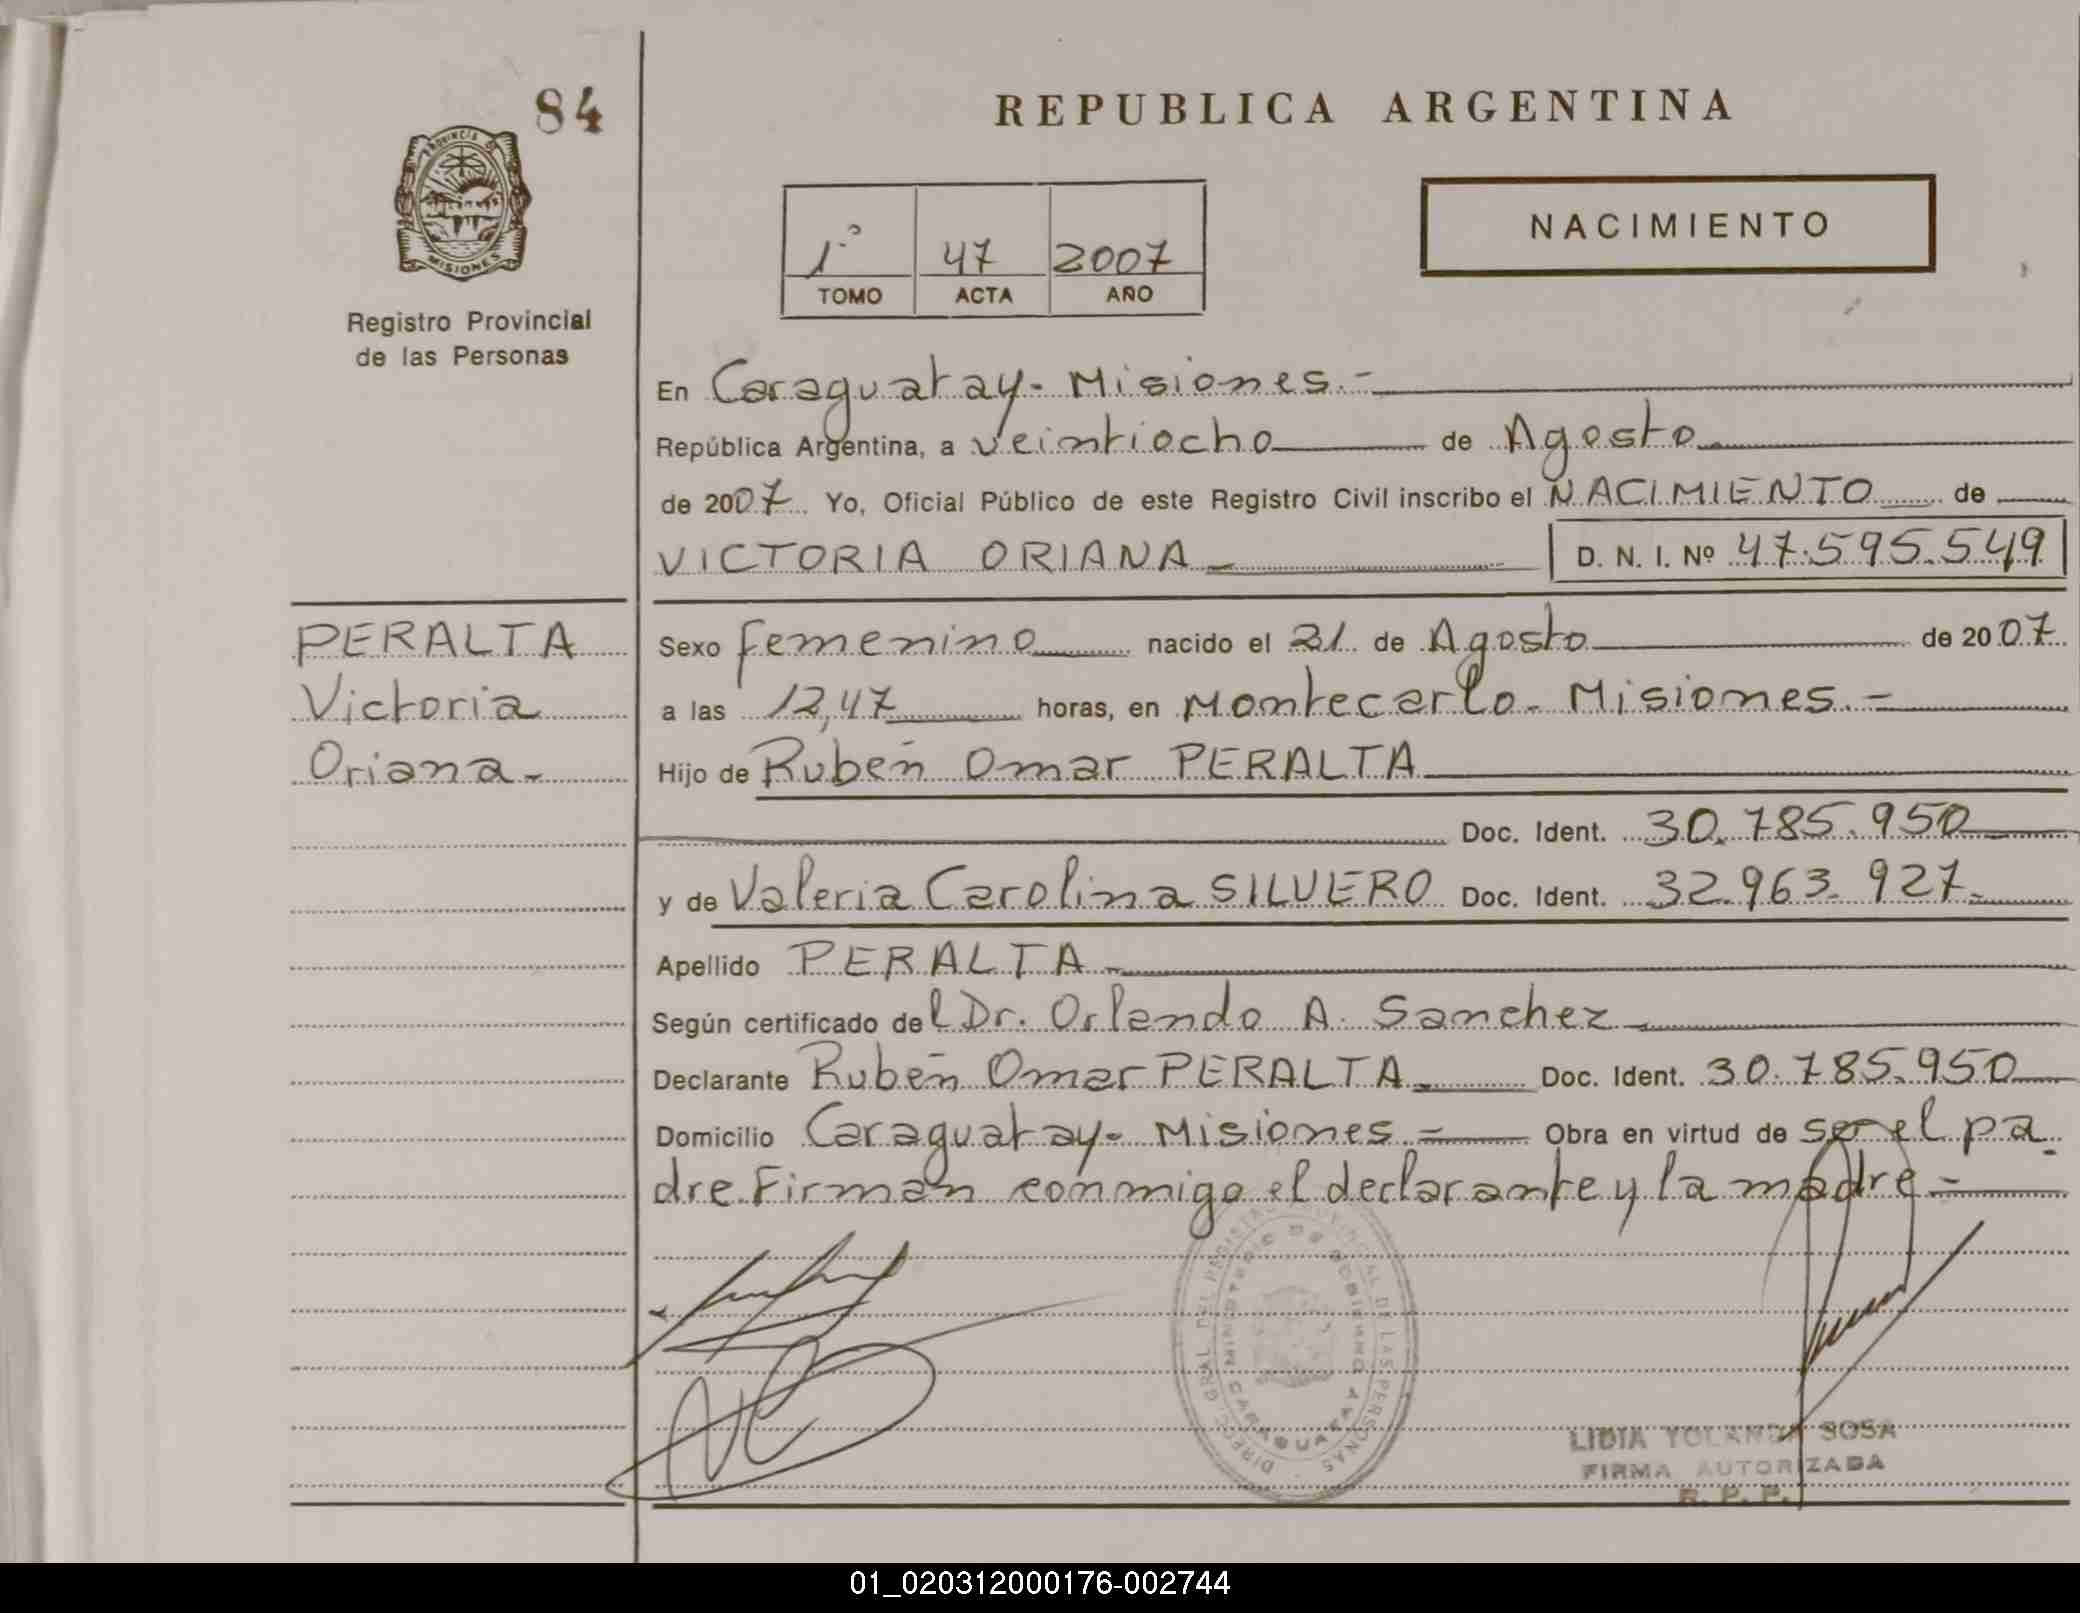 84
PROVINCIA DE
MISIONES
Registro Provincial
de las Personas
REPUBLICA ARGENTINA
1º 47 2007
TOMO ACTA AÑO
NACIMIENTO
En Caraguatay - Misiones.-
República Argentina, a veintiocho de Agosto
de 2007 Yo, Oficial Público de este Registro Civil inscribo el NACIMIENTO de
VICTORIA ORIANA D. N. I. Nº 47.595.549
PERALTA
Victoria
Oriana.-
Sexo femenino nacido el 21 de Agosto de 2007
a las 12,47 horas, en Montecarlo - Misiones.-
Hijo de Rubén Omar PERALTA
Doc. Ident. 30.785.950
y de Valeria Carolina SILVERO Doc. Ident. 32.963.927.-
Apellido PERALTA.-
Según certificado del Dr. Orlando A. Sanchez
Declarante Rubén Omar PERALTA.- Doc. Ident. 30.785.950
Domicilio Caraguatay - Misiones.- Obra en virtud de ser el pa-
dre. Firman conmigo el declarante y la madre.-
DIREC. GRAL. DEL REGISTRO PROVINCIAL DE LAS PERSONAS
MINISTERIO DE GOBIERNO
CARAGUATAY
LIDIA YOLANDA SOSA
FIRMA AUTORIZADA
R. P. P.
01_020312000176-002744